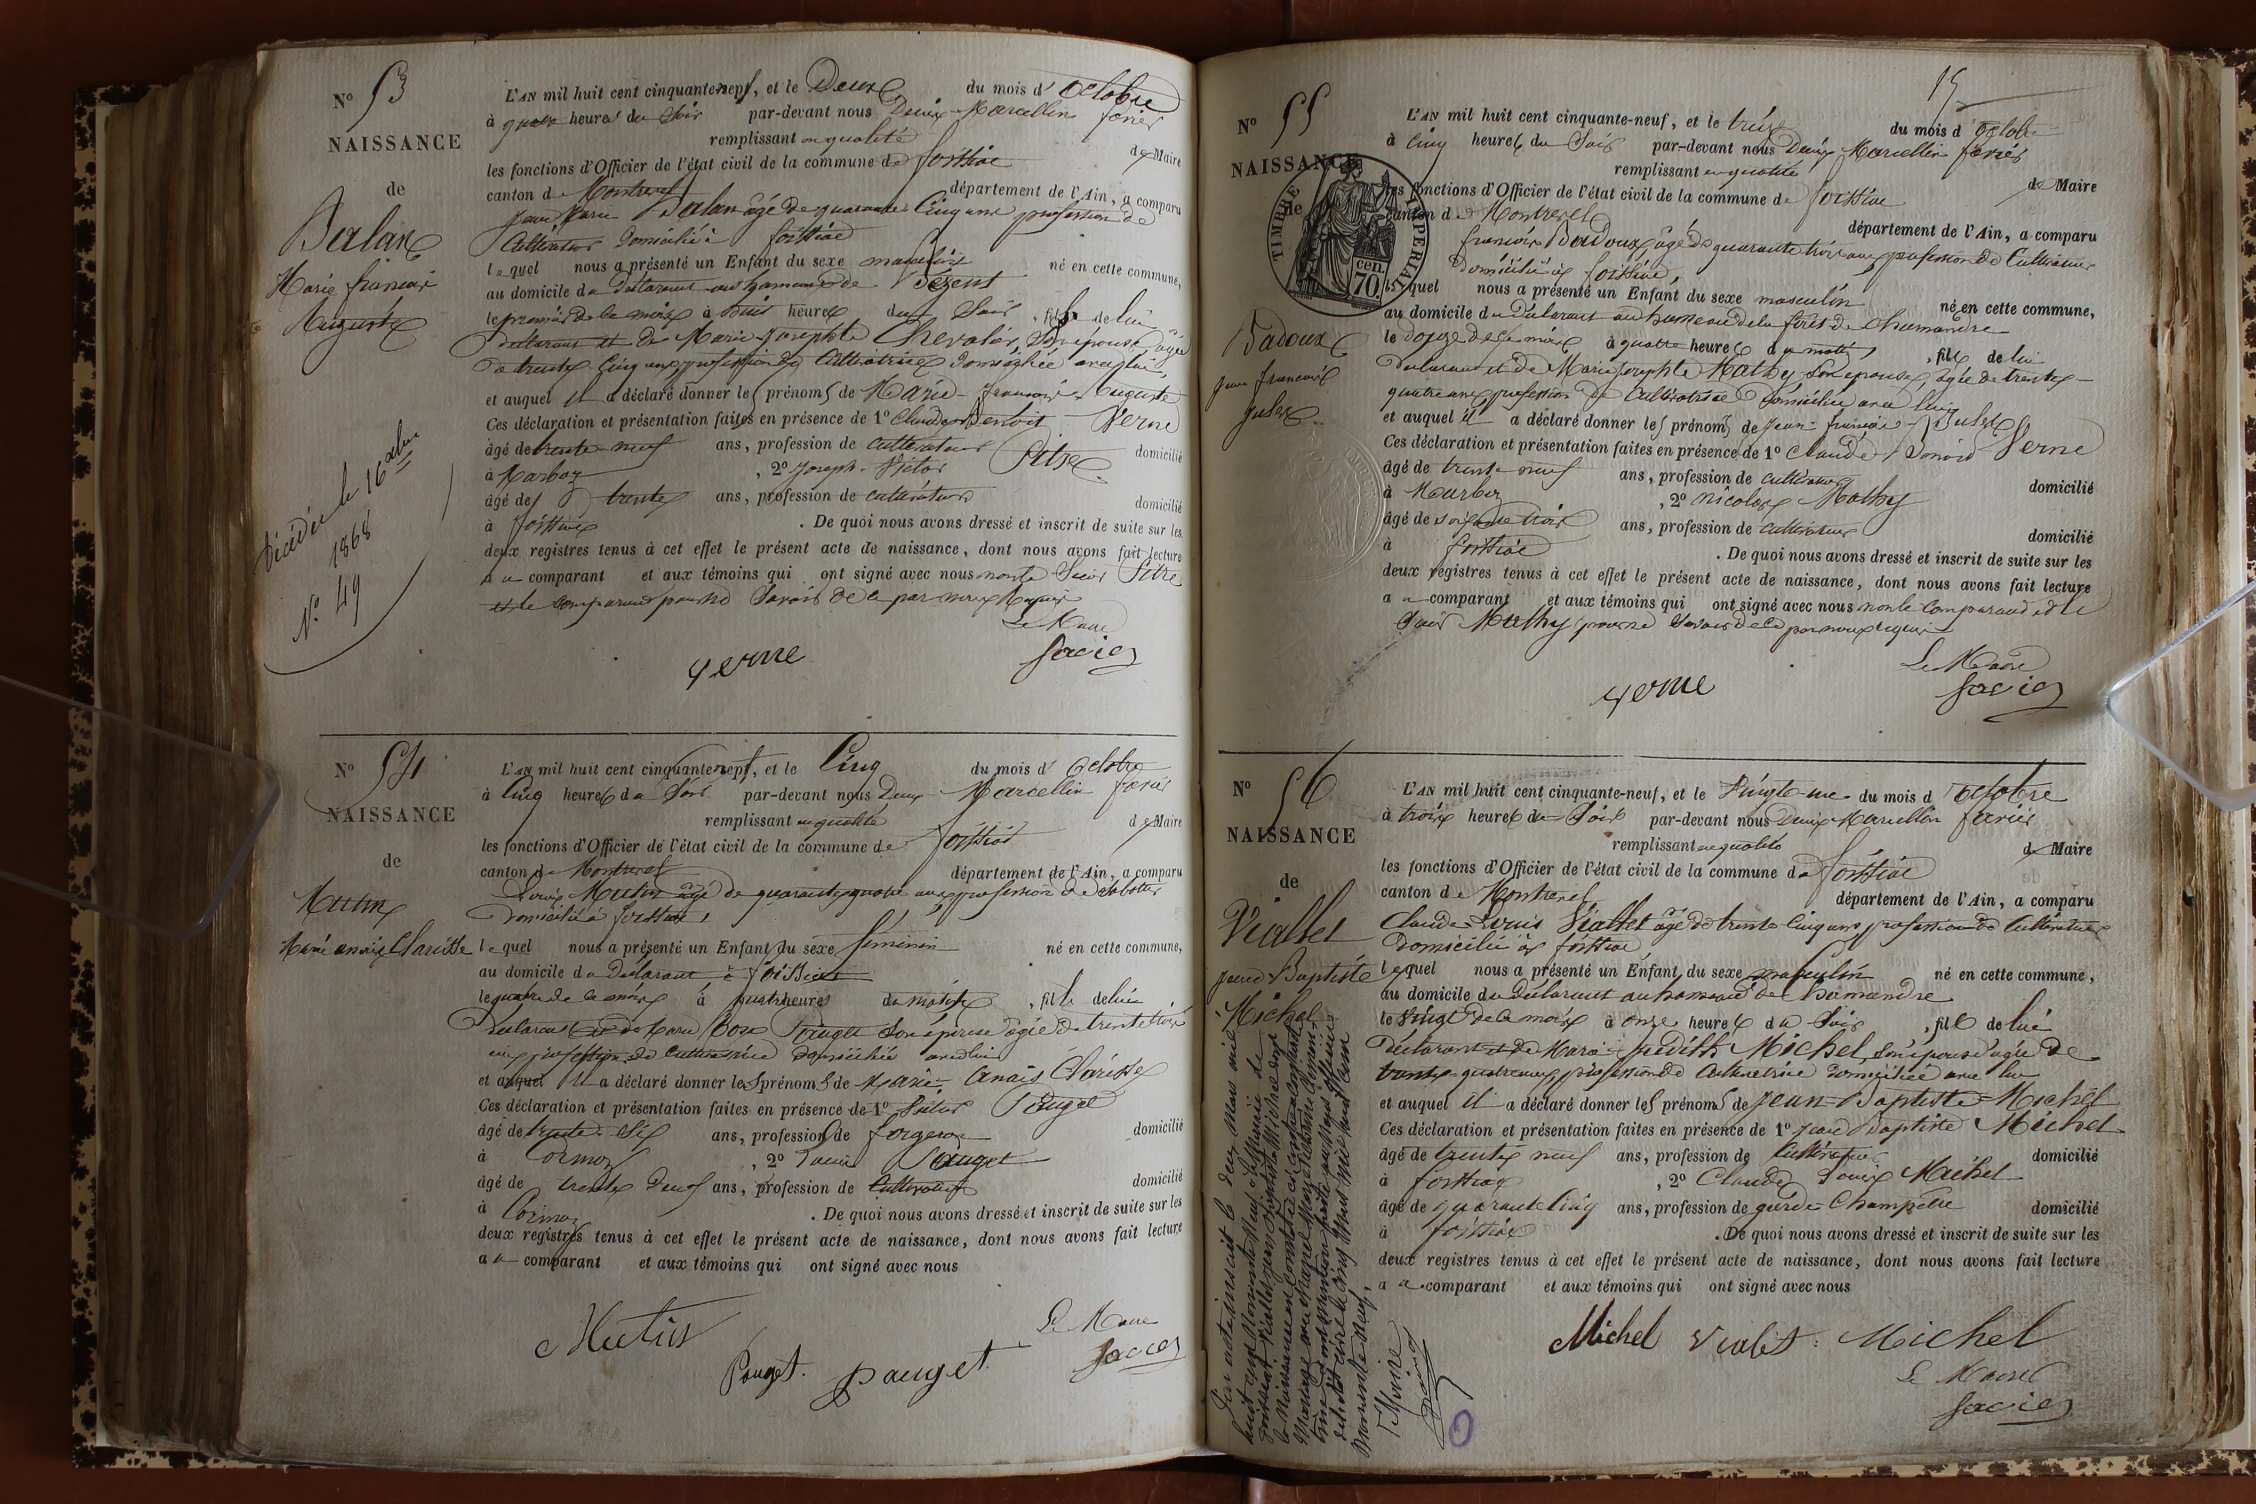 N.º 53
NAISSANCE
de
Balan
Marie françois
Auguste
Décédée le 16 xbre
1868
N.º 49
L'AN mil huit cent cinquante-neuf, et le Deux du mois d'octobre
à heures du Soir par-devant nous Denis Marcellin
remplissant en qualité de Maire
les fonctions d'Officier de l'état civil de la commune de foissiat
canton de Montrevel département de l'Ain, a comparu
Jean Marie Balan âgé de quarante Cinq ans profession de
Cultivateur Domicilié à foissiat
lequel nous a présenté un Enfant du sexe masculin né en cette commune,
au domicile du Déclarant au hameau de
le premier de ce mois à huit heures du Soir, fils de lui
Déclarant et de Marie Josephte Chevalier, Son épouse âgée
de trente Cinq ans profession de Cultivatrice Domiciliée avec lui,
et auquel il a déclaré donner les prénoms de Marie françois Auguste
Ces déclaration et présentation faites en présence de 1º Claude Benoit Verne
âgé de trente neuf ans, profession de cultivateur domicilié
à Marboz, 2º Joseph Victor Pitre
âgé de trente ans, profession de cultivateur domicilié
à foissiat. De quoi nous avons dressé et inscrit de suite sur les
deux registres tenus à cet effet le présent acte de naissance, dont nous avons fait lecture
au comparant et aux témoins qui ont signé avec nous non le Sieur Pitre
et le comparant pour ne Savoir de ce par nous Requis
Le Maire
Verne
N.º 54
NAISSANCE
de
Mutin
Marie anais Clarisse
L'AN mil huit cent cinquante-neuf, et le Cinq du mois d'octobre
à Cinq heures du Soir par-devant nous Denis Marcellin
remplissant en qualité de Maire
les fonctions d'Officier de l'état civil de la commune de foissiat
canton de Montrevel département de l'Ain, a comparu
Louis Mutin âgé de quarante quatre ans profession de Sabotier
Domicilié à foissiat,
lequel nous a présenté un Enfant du sexe féminin né en cette commune,
au domicile du Déclarant à foissiat
le quatre de ce mois à quatre heures du matin, fille de lui
Déclarant et de Marie Rose Pauget Son épouse âgée de trente trois
ans profession de Cultivatrice domiciliée avec lui
et auquel il a déclaré donner les prénoms de Marie Anais Clarisse
Ces déclaration et présentation faites en présence de 1º Victor Pauget
âgé de trente Six ans, profession de forgeron domicilié
à Cormoz, 2º Louis Pauget
âgé de trente Deux ans, profession de Cultivateur domicilié
à Cormoz. De quoi nous avons dressé et inscrit de suite sur les
deux registres tenus à cet effet le présent acte de naissance, dont nous avons fait lecture
au comparant et aux témoins qui ont signé avec nous
Mutin
Le Maire
Pauget. pauget
15
N.º 55
NAISSANCE
de
TIMBRE IMPERIAL
70 cen.
Badoux
Jean françois
Jules
L'AN mil huit cent cinquante-neuf, et le treize du mois d'octobre
à Cinq heures du Soir par-devant nous Denis Marcellin
remplissant en qualité de Maire
les fonctions d'Officier de l'état civil de la commune de foissiat
canton de Montrevel département de l'Ain, a comparu
françois Badoux âgé de quarante trois ans profession de Cultivateur
Domicilié à foissiat,
lequel nous a présenté un Enfant du sexe masculin né en cette commune,
au domicile du Déclarant au hameau de la forêt de Chamandre
le Douze de ce mois à quatre heures du matin, fils de lui
Déclarant et de Marie Josephte Mathy Son épouse, âgée de trente
quatre ans profession de Cultivatrice Domiciliée avec lui
et auquel il a déclaré donner les prénoms de Jean françois Jules
Ces déclaration et présentation faites en présence de 1º Claude Benoid Verne
âgé de trente neuf ans, profession de cultivateur domicilié
à Marboz, 2º Nicolas Mathy
âgé de soixante trois ans, profession de Cultivateur domicilié
à foissiat. De quoi nous avons dressé et inscrit de suite sur les
deux registres tenus à cet effet le présent acte de naissance, dont nous avons fait lecture
au comparant et aux témoins qui ont signé avec nous non le Comparant et le
Sieur Mathy pour ne Savoir de ce par nous requis
Le Maire
Verne
N.º 56
NAISSANCE
de
Viallet
Jean Baptiste
Michel
L'AN mil huit cent cinquante-neuf, et le Vingt-une du mois d'octobre
à trois heures du Soir par-devant nous Denis Marcellin
remplissant en qualité de Maire
les fonctions d'Officier de l'état civil de la commune de foissiat
canton de Montrevel département de l'Ain, a comparu
Claude Louis Viallet âgé de trente Cinq ans profession de Cultivateur
Domicilié à foissiat
lequel nous a présenté un Enfant du sexe masculin né en cette commune,
au domicile du Déclarant au hameau de Chamandre
le Vingt de ce mois à onze heures du Soir, fils de lui
Déclarant et de Marie Judith Michel, Son épouse âgée de
trente quatre ans, profession de Cultivatrice domiciliée avec lui
et auquel il a déclaré donner les prénoms de Jean-Baptiste Michel
Ces déclaration et présentation faites en présence de 1º Jean Baptiste Michel
âgé de trente neuf ans, profession de Cultivateur domicilié
à foissiat, 2º Claude Louis Michel
âgé de quarante Cinq ans, profession de garde Champêtre domicilié
à foissiat. De quoi nous avons dressé et inscrit de suite sur les
deux registres tenus à cet effet le présent acte de naissance, dont nous avons fait lecture
au comparant et aux témoins qui ont signé avec nous
Michel Viallet Michel
Le Maire
Par acte inscrit le deux Mars mil
huit cent Nonante Neuf à la Mairie de
foissiat Viallet Jean Baptiste Michel dont
la Naissance est constatée ci-contre a contracté
Mariage avec